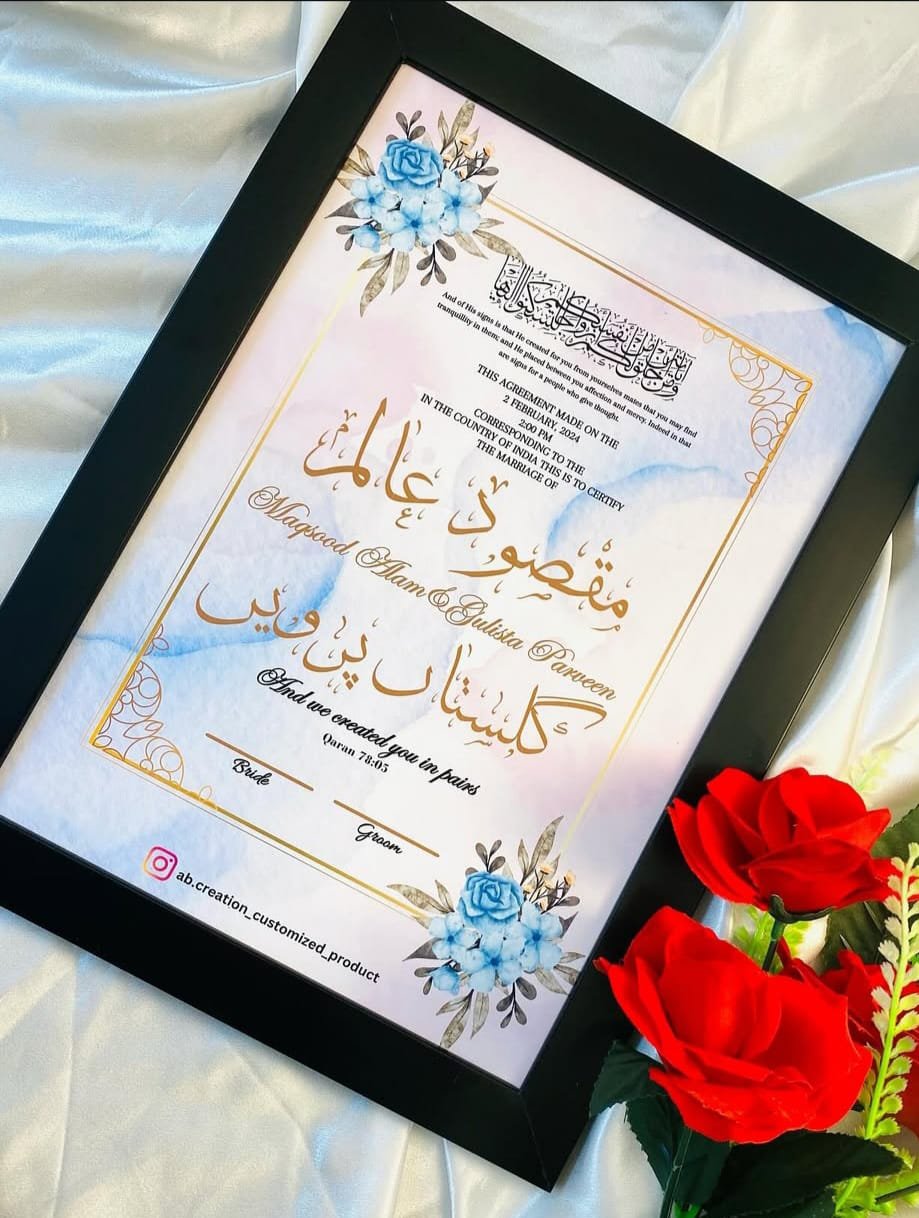 ومن آياته أن خلق لكم من أنفسكم أزواجا لتسكنوا إليها
And of His signs is that He created for you from yourselves mates that you may find
tranquillity in them; and He placed between you affection and mercy. Indeed in that
are signs for a people who give thought.
THIS AGREEMENT MADE ON THE
2 FEBRUARY, 2024
2:00 PM
CORRESPONDING TO THE
IN THE COUNTRY OF INDIA THIS IS TO CERTIFY
THE MARRIAGE OF
مقصود عالم
Maqsood Alam & Gulista Parveen
گلستاں پرویں
And we created you in pairs
Qaran 78:05
Bride
Groom
ab.creation_customized_product